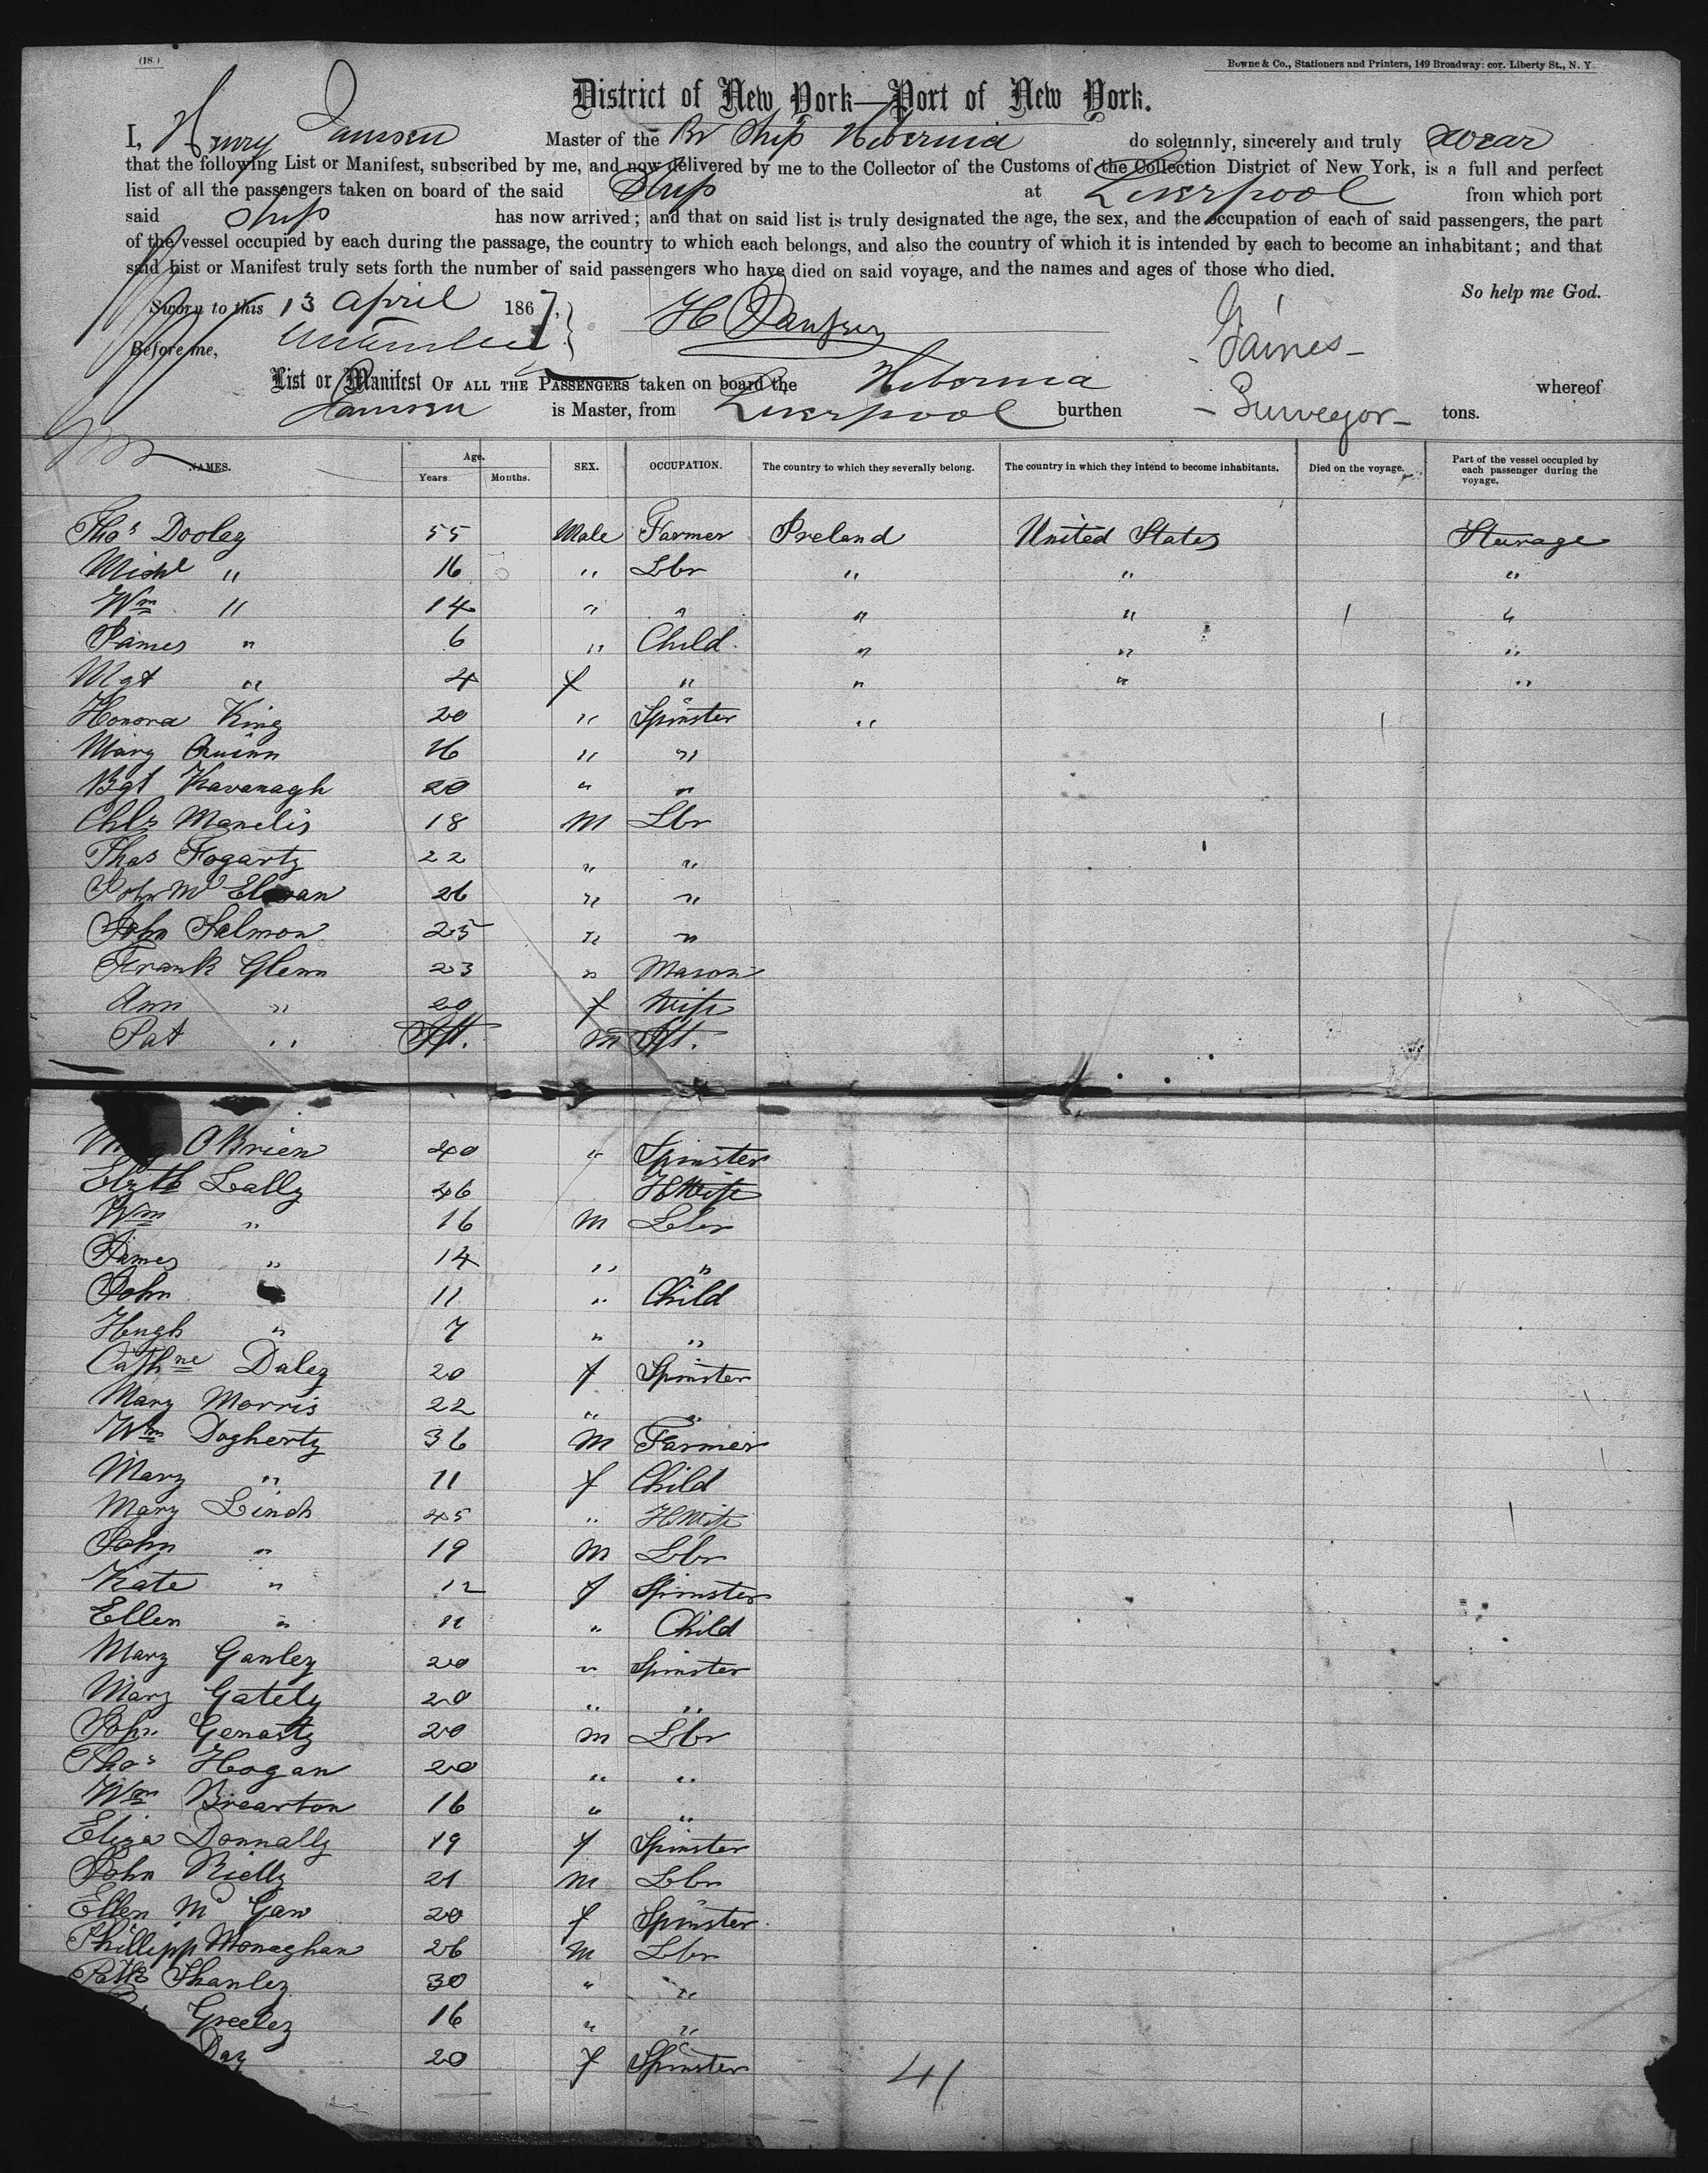 (18.)
Bowne & Co., Stationers and Printers, 149 Broadway: cor. Liberty St., N. Y.
District of New York—Port of New York.
I, Henry Janssen Master of the Br Ship Hibernia do solemnly, sincerely and truly swear
that the following List or Manifest, subscribed by me, and now delivered by me to the Collector of the Customs of the Collection District of New York, is a full and perfect
list of all the passengers taken on board of the said Ship at Liverpool from which port
said Ship has now arrived; and that on said list is truly designated the age, the sex, and the occupation of each of said passengers, the part
of the vessel occupied by each during the passage, the country to which each belongs, and also the country of which it is intended by each to become an inhabitant; and that
said List or Manifest truly sets forth the number of said passengers who have died on said voyage, and the names and ages of those who died.
So help me God.
Sworn to this 13 April 1867,
H Janssen
Before me,
Gaines
List or Manifest OF ALL THE PASSENGERS taken on board the Hibernia whereof
Janssen is Master, from Liverpool burthen - Surveyor - tons.
NAMES. Age. Years Months. SEX. OCCUPATION. The country to which they severally belong. The country in which they intend to become inhabitants. Died on the voyage. Part of the vessel occupied by each passenger during the voyage.
Thos Dooley 55 Male Farmer Ireland United States Steerage
Michl " 16 " Lbr " " "
Wm " 14 " " " " "
James " 6 " Child " " "
Mgt " 4 f " " " "
Honora King 20 " Spinster "
Mary Quinn 16 " "
Bgt Kavanagh 20 " "
Chls Manelis 18 M Lbr
Thos Fogarty 22 " "
John Mc 26 " "
John Salmon 25 " "
Frank Glenn 23 " Mason
Ann " 20 f Wife
Pat " Ift. M Ift.
O'Brien 40 " Spinster
Elzth Lally 46 HWife
Wm " 16 M Lbr
James " 14 " "
John 11 " Child
Hugh " 7 " "
Cathne Daley 20 f Spinster
Mary Morris 22 " "
Wm Dogherty 36 M Farmer
Mary " 11 f Child
Mary Linch 45 " HWife
John " 19 M Lbr
Kate " 12 f Spinster
Ellen " 11 " Child
Mary Ganley 20 " Spinster
Mary Gately 20 " "
20 M Lbr
Thos Hogan 20 " "
Wm Brearton 16 " "
Eliza Donnally 19 f Spinster
John Rielly 21 M Lbr
Ellen Mc Gaw 20 f Spinster
Phillipp Monaghan 26 M Lbr
Patk Shanley 30 " "
Greeley 16 " "
Day 20 f Spinster
41